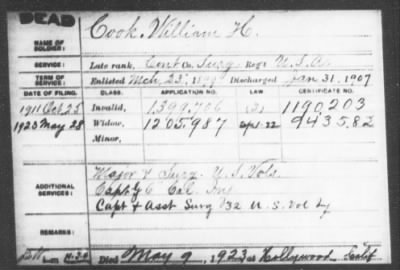 DEAD
NAME OF SOLDIER: Cook, William H.
SERVICE: Late rank, Cont. Surg. Regt U.S.A.
TERM OF SERVICE: Enlisted Mch 23, Discharged Jan 31, 1907
DATE OF FILING. CLASS. APPLICATION NO. LAW CERTIFICATE NO.
1911 Oct 25 Invalid, 1,399,706 (2) 1190203
1923 May 28 Widow, 1205,987 943582
Minor,
ADDITIONAL SERVICES:
Major & Surg. U.S. Vols.
Capt G 6 Cal. Inf
Capt & Asst Surg 32 U.S. Vol Inf
REMARKS:
Died May 9, 1923 at Hollywood Calif